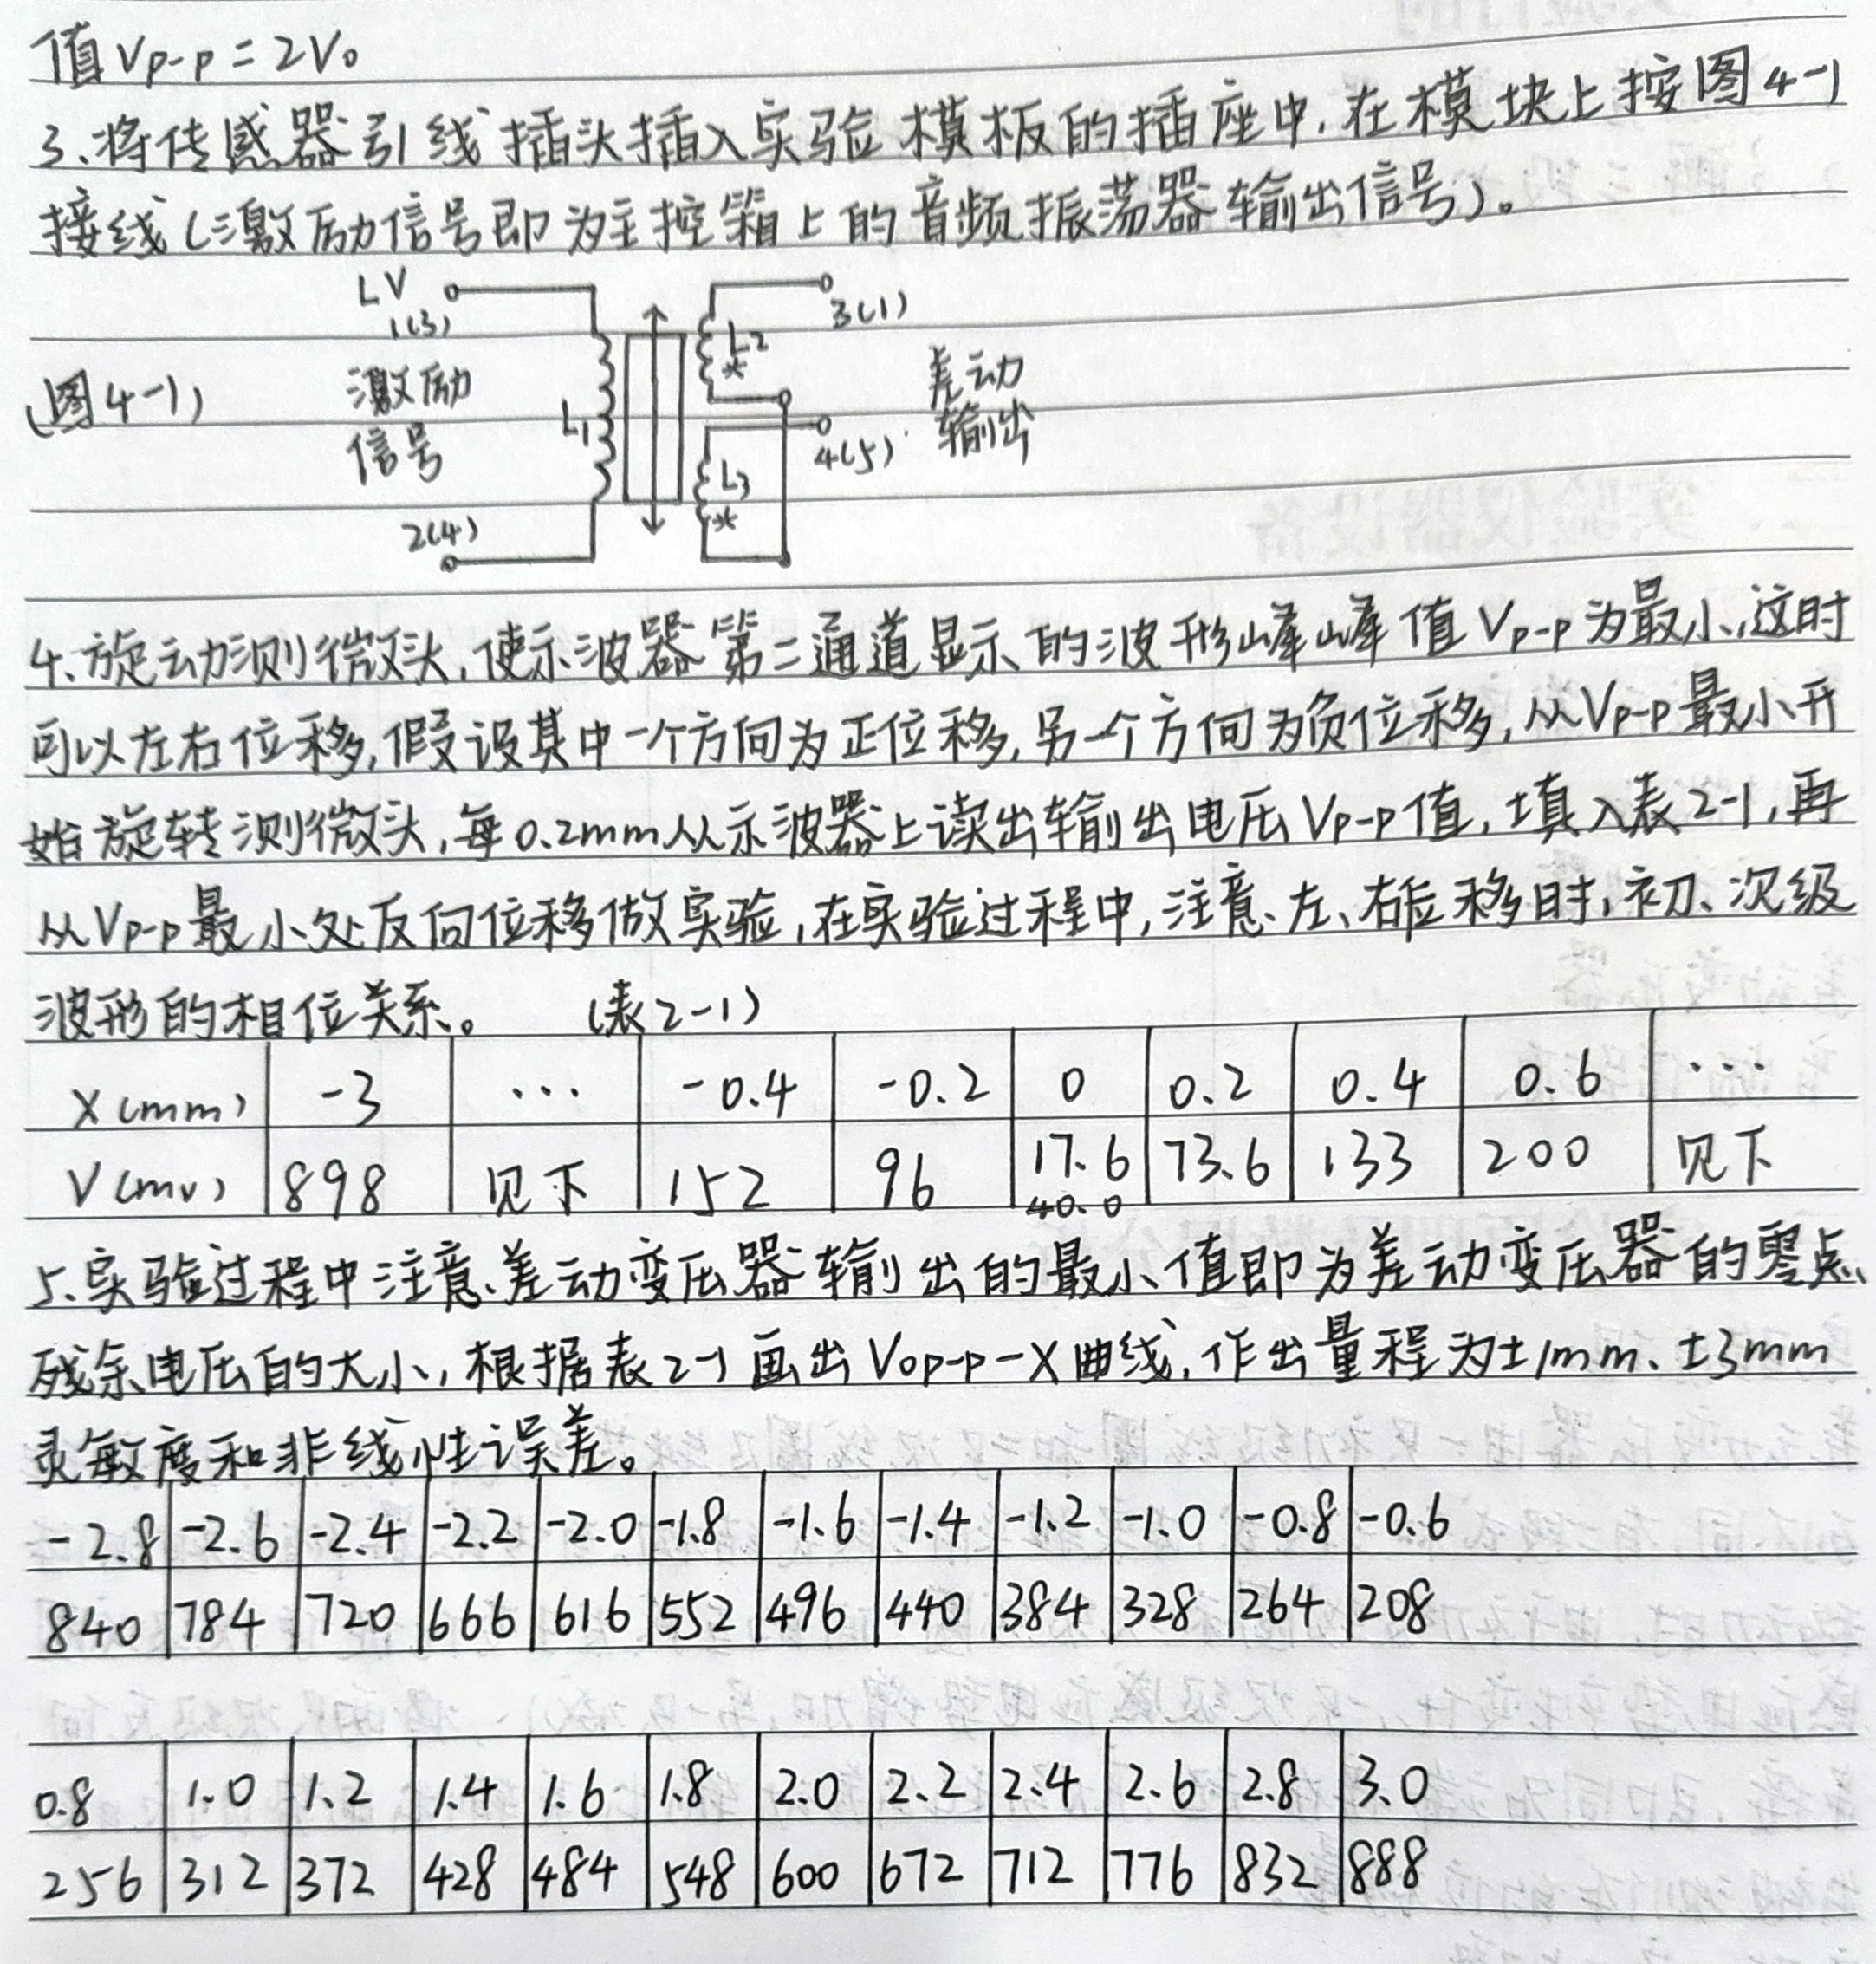 值Vp-p=2V。
3、将传感器引线插头插入实验模板的插座中,在模块上按图4-1
接线(激励信号即为主控箱上的音频振荡器输出信号)。
LV
1(3)
3(1)
L2
*
(图4-1)
激励
信号
L1
差动
输出
4(5)
L3
*
2(4)
4、旋动测微头,使示波器第二通道显示的波形峰峰值Vp-p为最小,这时
可以左右位移,假设其中一个方向为正位移,另一个方向为负位移,从Vp-p最小开
始旋转测微头,每0.2mm从示波器上读出输出电压Vp-p值,填入表2-1,再
从Vp-p最小处反向位移做实验,在实验过程中,注意、左、右位移时,初、次级
波形的相位关系。 (表2-1)
X(mm) -3 ... -0.4 -0.2 0 0.2 0.4 0.6 ...
V(mv) 898 见下 152 96 17.6 73.6 133 200 见下
40.0
5、实验过程中注意、差动变压器输出的最小值即为差动变压器的零点
残余电压的大小,根据表2-1画出Vop-p-X曲线,作出量程为±1mm、±3mm
灵敏度和非线性误差。
-2.8 -2.6 -2.4 -2.2 -2.0 -1.8 -1.6 -1.4 -1.2 -1.0 -0.8 -0.6
840 784 720 666 616 552 496 440 384 328 264 208
0.8 1.0 1.2 1.4 1.6 1.8 2.0 2.2 2.4 2.6 2.8 3.0
256 312 372 428 484 548 600 672 712 776 832 888